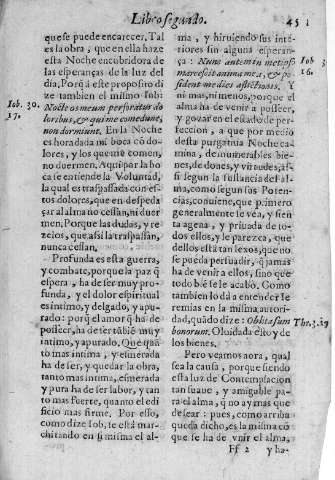 Libro segundo.
451
que se puede encarecer. Tal
es la obra, que en ella haze
esta Noche encubridora de
las esperanças de la luz del
dia. Porq̃ à este proposito di
ze tambien el mismo Iob:
Nocte os meum perforatur do
loribus, & qui me comedunt,
non dormiunt. En la Noche
es horadada mi boca cõ do-
lores, y los que me comen,
no duermen. Aqui por la bo
ca se entiende la Voluntad,
la qual es traspassada con es-
tos dolores, que en despeda
çar al alma no cessan, ni duer
men. Porque las dudas, y re-
zelos, que assi la traspassan,
nunca cessan.
Profunda es esta guerra,
y combate, porque la paz q̃
espera, ha de ser muy pro-
funda, y el dolor espiritual
es intimo, y delgado, y apu-
rado: porq̃ el amor q̃ ha de
posseer, ha de ser tãbiẽ muy
intimo, y apurado. Que quãto
mas intima, y esmerada
ha de ser, y quedar la obra,
tanto mas intima, esmerada
y pura ha de ser la labor, y tan
to mas fuerte, quanto el edi
ficio mas firme. Por esso,
como dize Iob, se està mar-
chitando en si misma el al-
Iob. 30.
17.
ma, y hirviendo sus inte-
riores sin alguna esperan-
ça: Nunc autem in metipso
marcescit anima mea, & pos
sident me dies afflictionis. Y
ni mas, ni menos, porque el
alma ha de venir à posseer,
y gozar en el estado de per-
feccion, à que por medio
desta purgativa Noche ca-
mina, de innumerables bie-
nes, de dones, y virtudes, as-
si segun la sustancia del al-
ma, como segun sus Poten-
cias, conviene, que primero
generalmente se vea, y sien
ta agena, y privada de to-
dos ellos, y le parezca, que
dellos està tan lexos, que no
se pueda persuadir, q̃ jamas
ha de venir à ellos, sino que
todo biẽ se le acabò. Como
tambien lo dà à entender Ie
remias en la misma autori-
dad, quãdo dize: Oblitus sum
bonorum. Olvidada estoy de
los bienes.
Pero veamos aora, qual
sea la causa, porque siendo
esta luz de Contemplacion
tan suave, y amigable pa-
ra el alma, q̃ no ay mas que
desear: pues, como arriba
queda dicho, es la misma cõ
que se ha de vnir el alma,
16.
Thr. 3. 17
Ff 2
y ha-